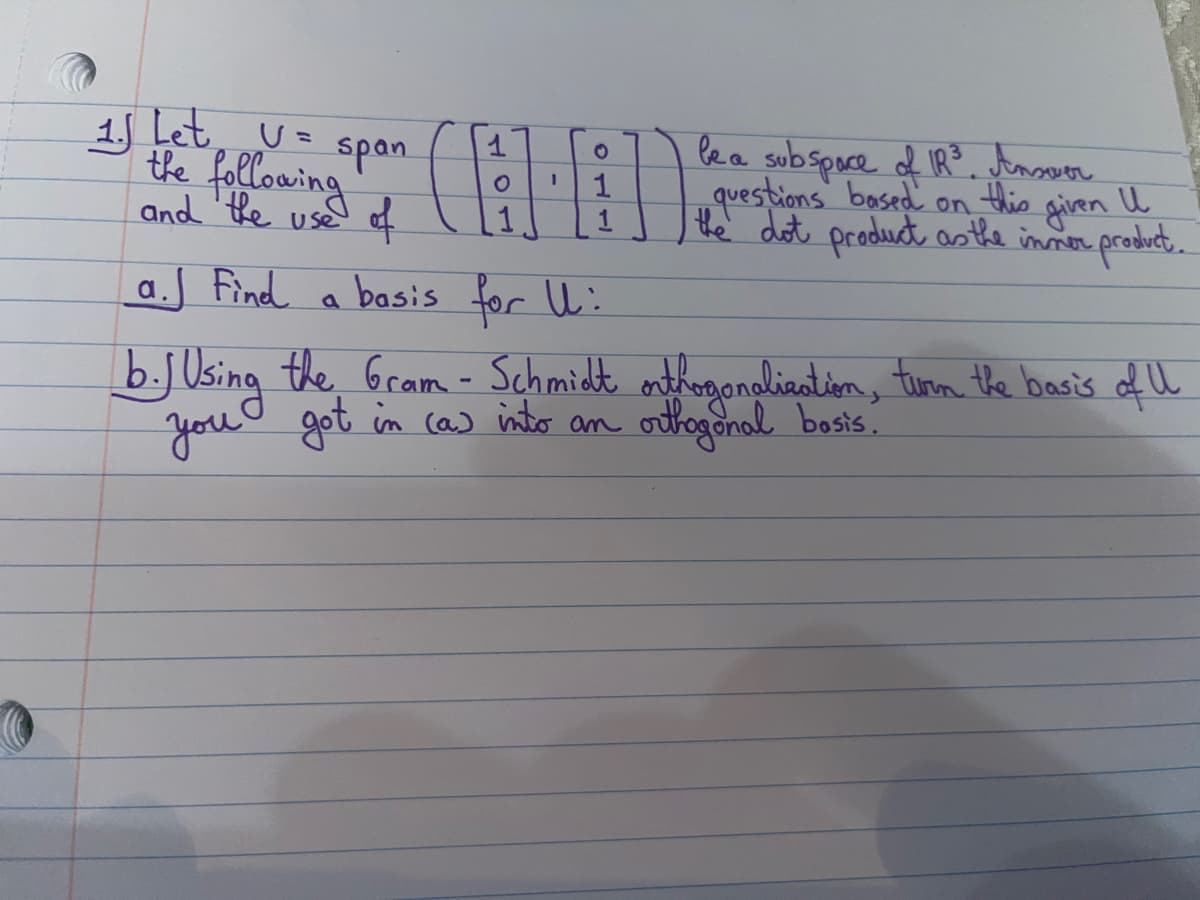 1.) Let U = span ( [1 0 1] , [0 1 1] ) be a subspace of ℝ³. Answer
the following questions based on this given U
and the use of the dot product as the inner product.
a.) Find a basis for U:
b.) Using the Gram - Schmidt orthogonalization, turn the basis of U
you got in (a) into an orthogonal basis.